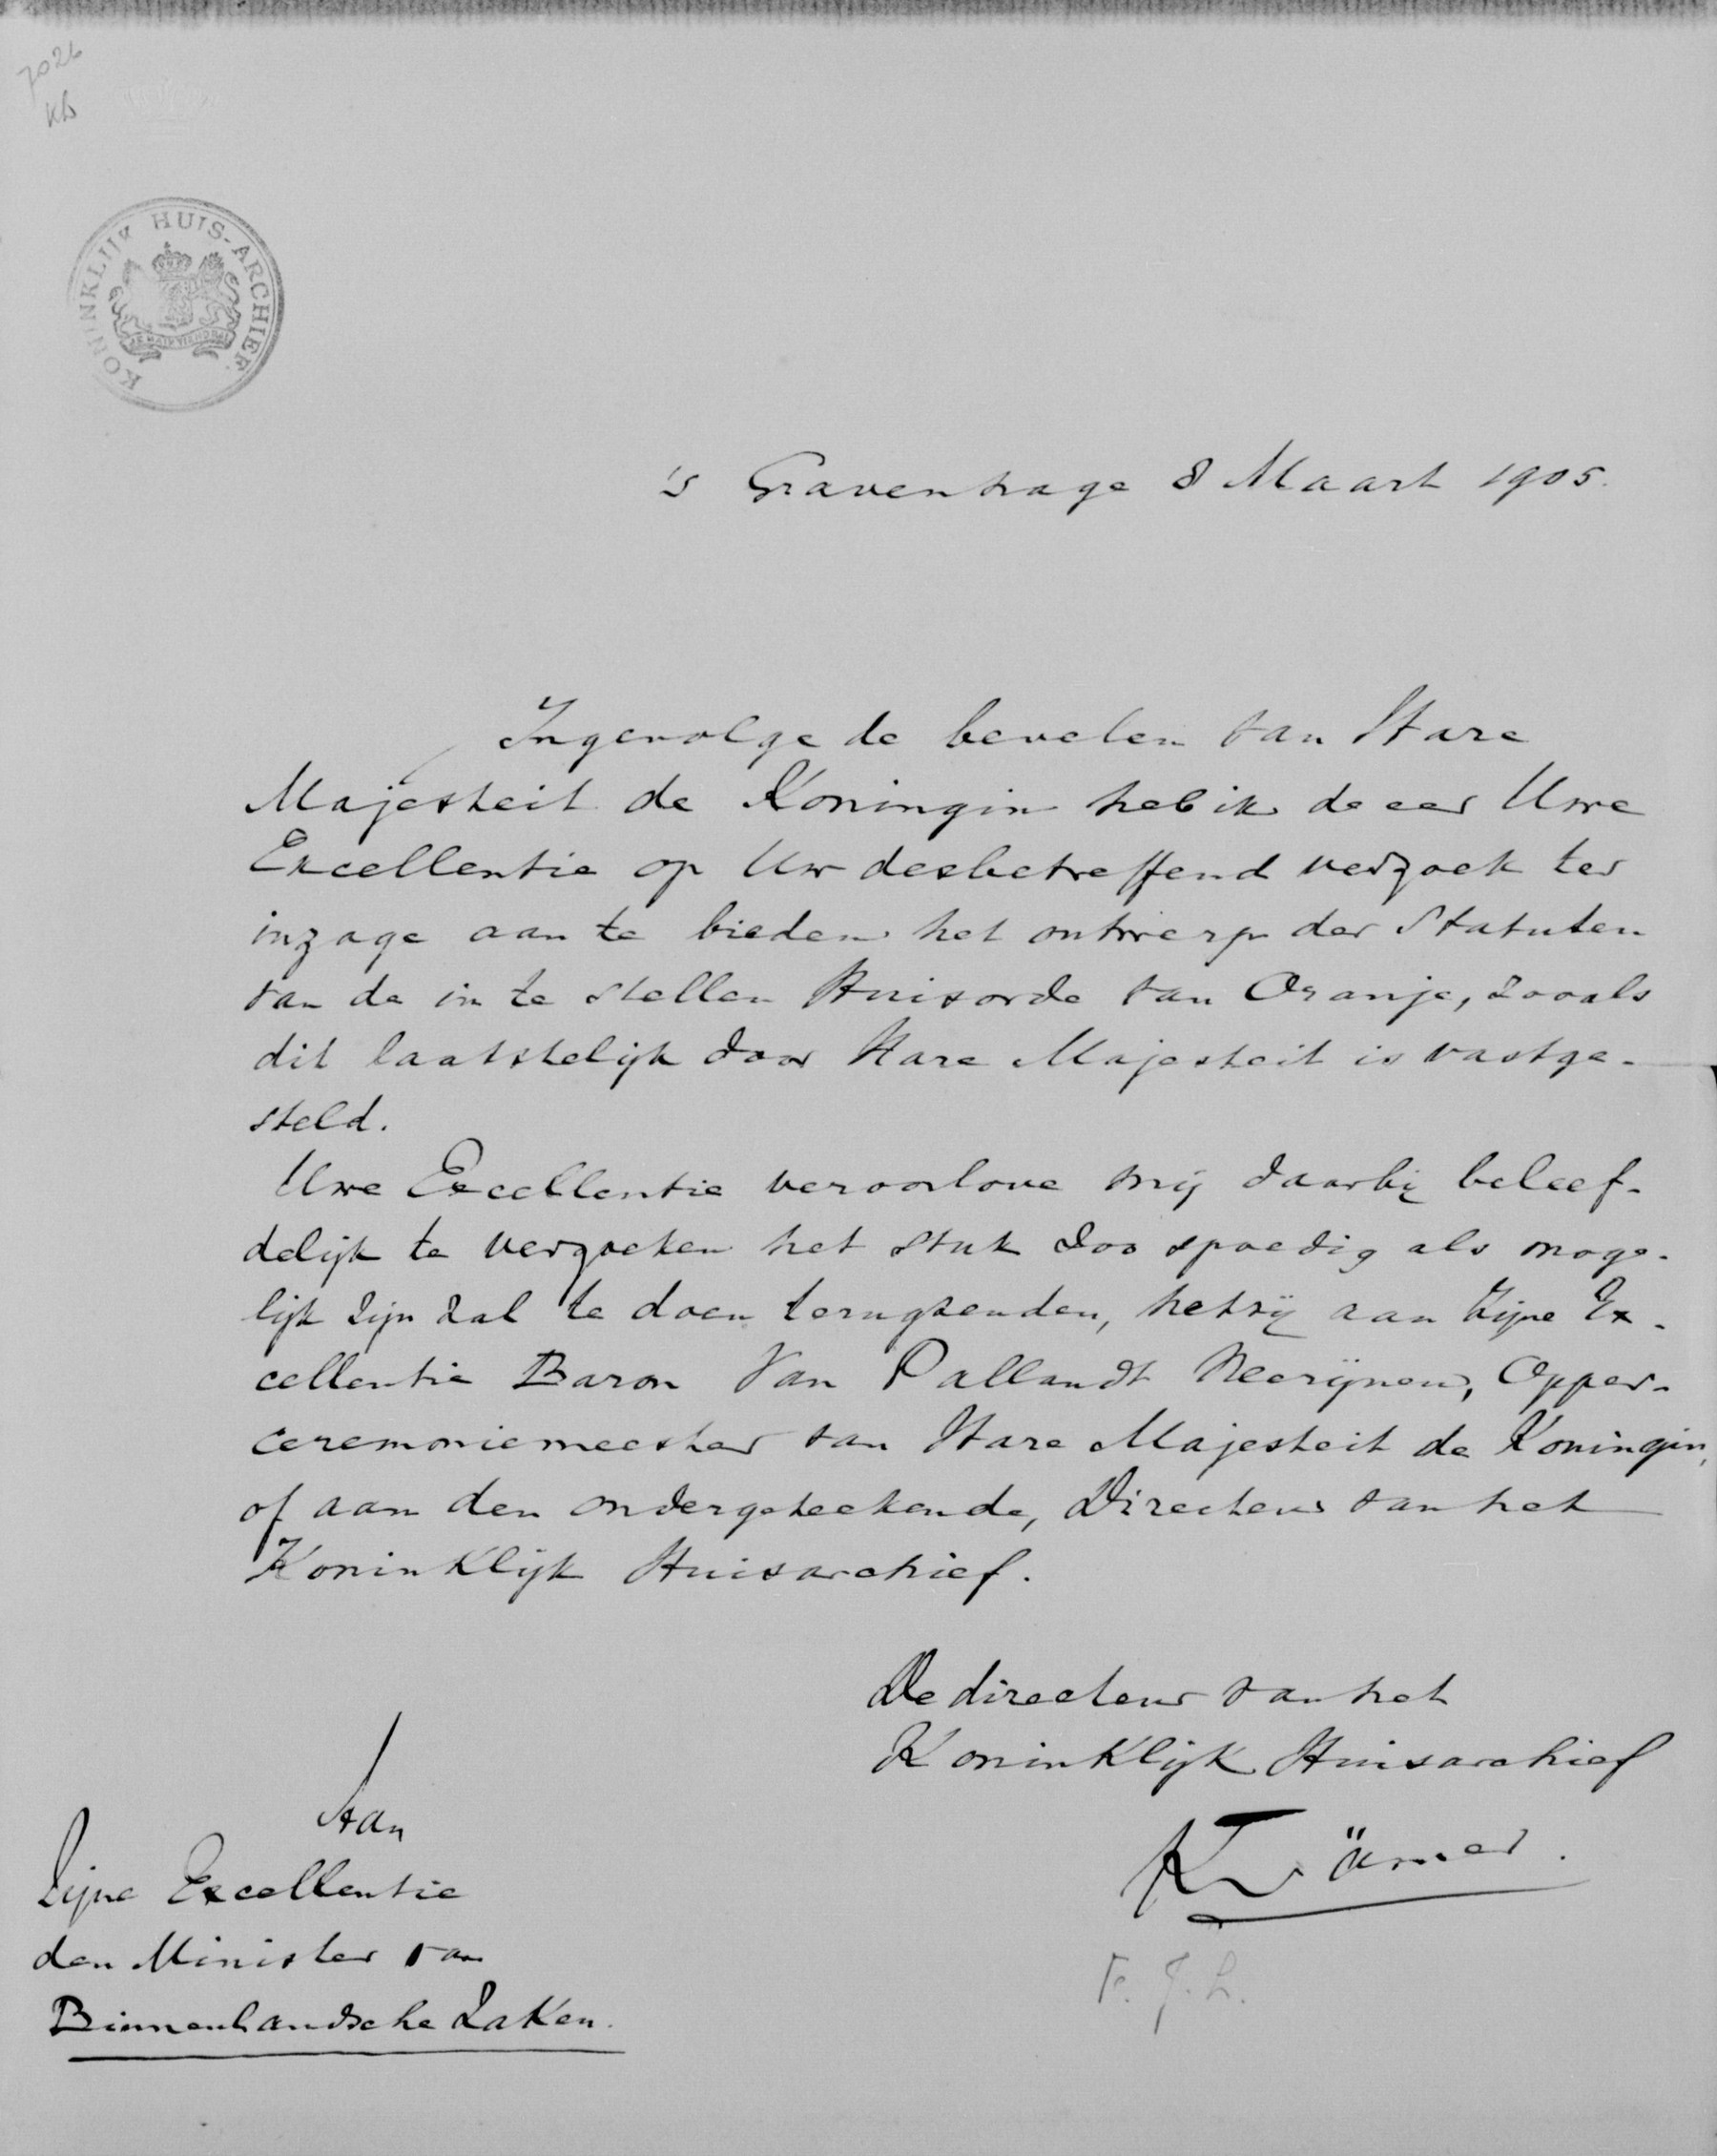 7026
kb
KONINKLIJK HUIS-ARCHIEF.
JE MAINTIENDRAI
's Gravenhage 8 Maart 1905.
Ingevolge de bevelen van Hare
Majesteit de Koningin heb ik de eer Uwe
Excellentie op Uw desbetreffend verzoek ter
inzage aan te bieden het ontwerp der Statuten
van de in te stellen Huisorde van Oranje, zooals
dit laatstelijk door Hare Majesteit is vastge-
steld.
Uwe Excellentie veroorlove mij daarbij beleef-
delijk te verzoeken het stuk zoo spoedig als moge-
lijk zijn zal te doen terugzenden, hetzij aan Zijne Ex-
cellentie Baron Van Pallandt Neerijnen, Opper-
ceremoniemeester van Hare Majesteit de Koningin,
of aan den ondergeteekende, Directeur van het
Koninklijk Huisarchief.
De directeur van het
Koninklijk Huisarchief
Krämer.
F. J. L.
Aan
Zijne Excellentie
den Minister van
Binnenlandsche Zaken.